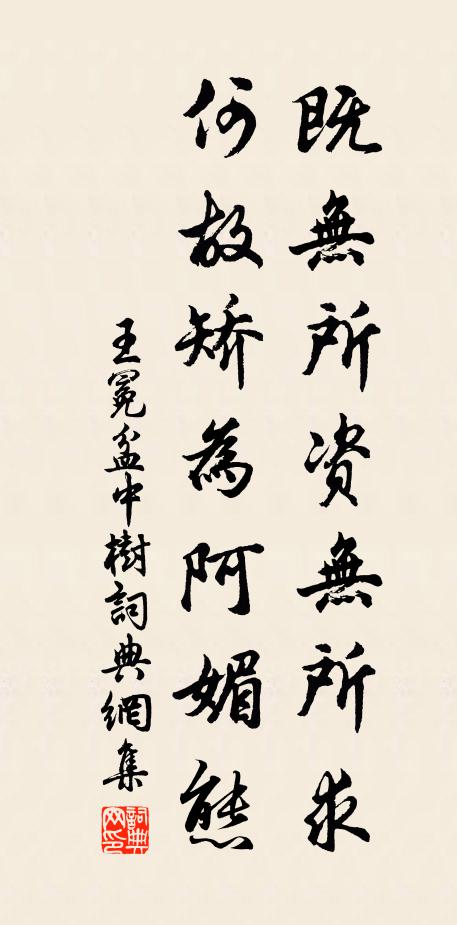 既無所資無所求
何故矯為阿媚態
王冕盆中樹詞典網集
詞典网印